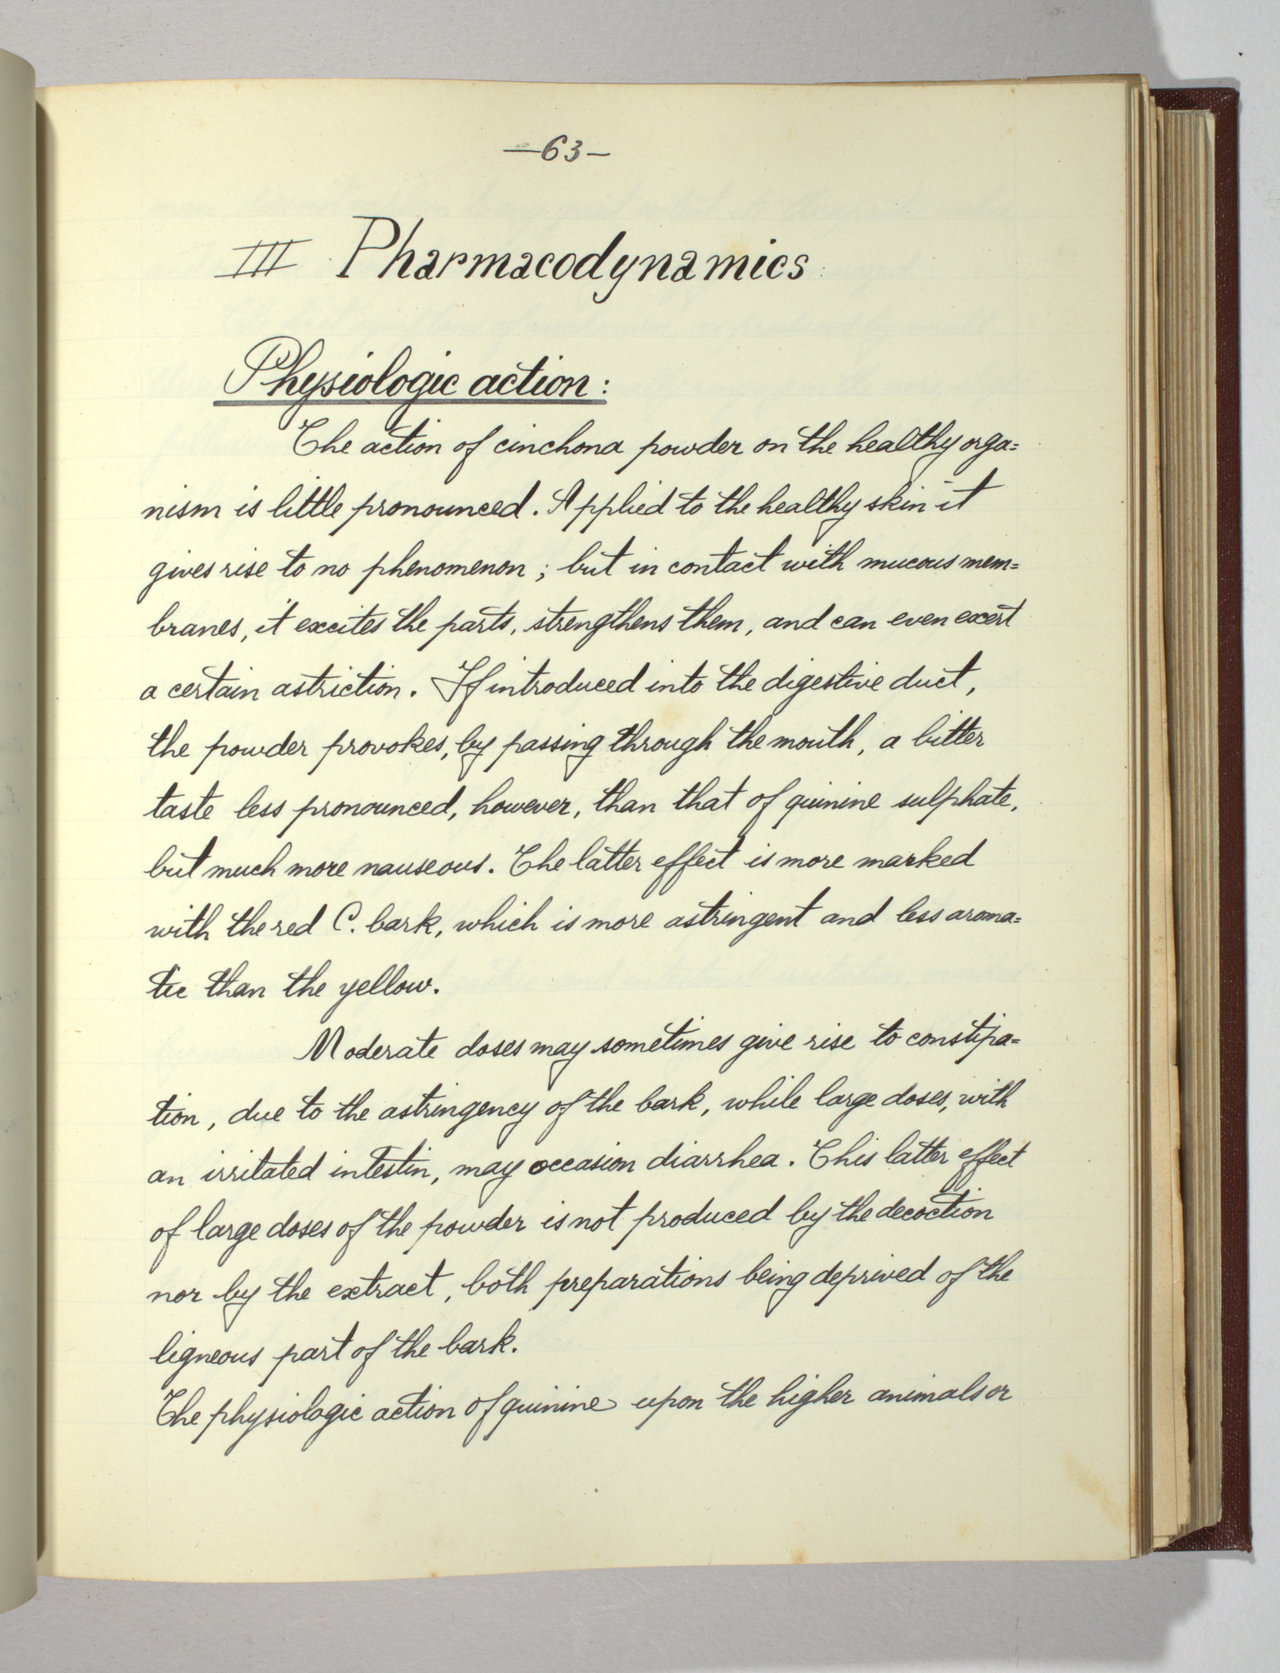 —63—
III Pharmacodynamics
Physiologic action:
The action of cinchona powder on the healthy orga=
nism is little pronounced. Applied to the healthy skin it
gives rise to no phenomenon; but in contact with mucous mem=
branes, it excites the parts, strengthens them, and can even exert
a certain astriction. If introduced into the digestive duct,
the powder provokes, by passing through the mouth, a bitter
taste less pronounced, however, than that of quinine sulphate,
but much more nauseous. The latter effect is more marked
with the red C. bark, which is more astringent and less aroma=
tic than the yellow.
Moderate doses may sometimes give rise to constipa=
tion, due to the astringency of the bark, while large doses, with
an irritated intestin, may occasion diarrhea. This latter effect
of large doses of the powder is not produced by the decoction
nor by the extract, both preparations being deprived of the
ligneous part of the bark.
The physiologic action of quinine upon the higher animals or